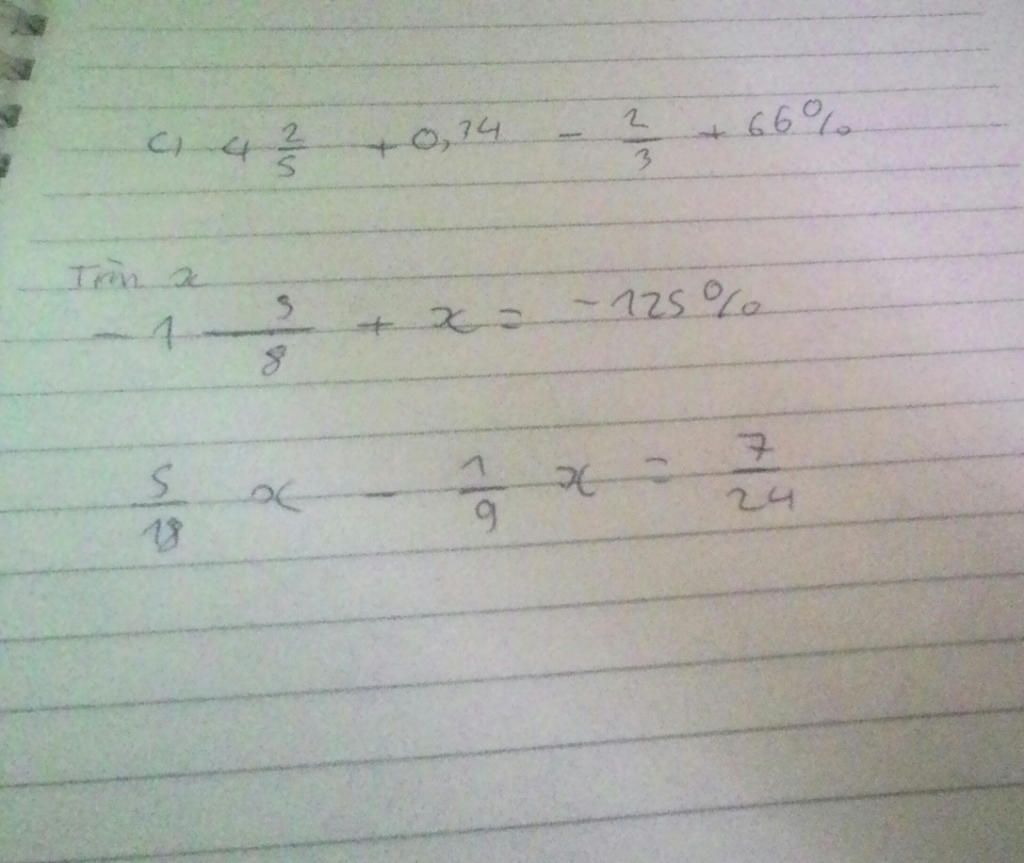 c) 4 2/5 + 0,74 - 2/3 + 66%
Tìm x
- 1 3/8 + x = -125%
5/18 x - 1/9 x = 7/24